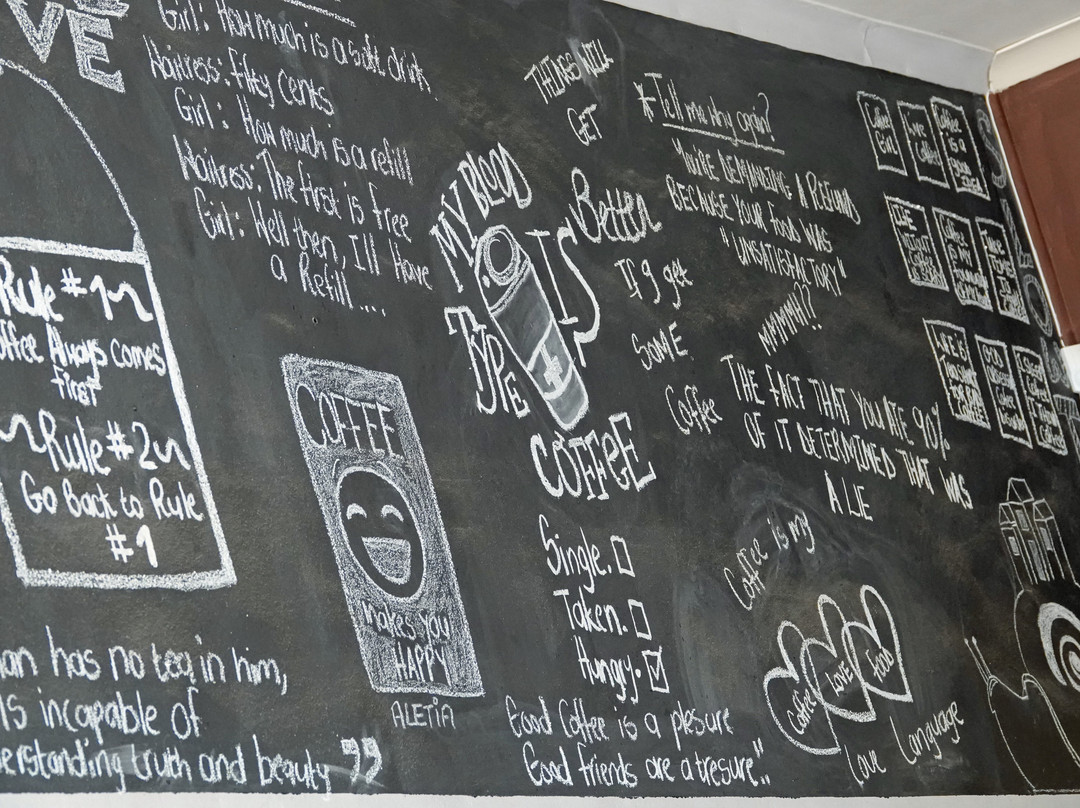 VE
Girl: How much is a soft drink
Waitress: fifty cents
Girl: How much is a refill
Waitress: The first is free
Girl: Well then, I'll have
a Refill....
Rule #1
Coffee Always comes
first
Rule #2
Go Back to Rule
#1
an has no tea in him,
is incapable of
derstanding truth and beauty "
COFFEE
makes you
HAPPY
ALETIA
MY BLOOD
TYPE
IS
COFFEE
Single.
Taken.
Hungry.
Good Coffee is a plesure
Good friends are a tresure"..
THINGS WILL
GET
Better
If I get
SOME
Coffee
* Tell me why again?
YOU'RE DEMANDING A REFUND
BECAUSE YOUR FOOD WAS
"UNSATISFACTORY"
MMMMH??
THE FACT THAT YOU ATE 90%
OF IT DETERMINED THAT WAS
A LIE
Coffee is my
Coffee
LOVE
food
Love Language
Coffee
Girl
Coffee
Coffee
is a
LIFE
Coffee
is my
LIFE IS